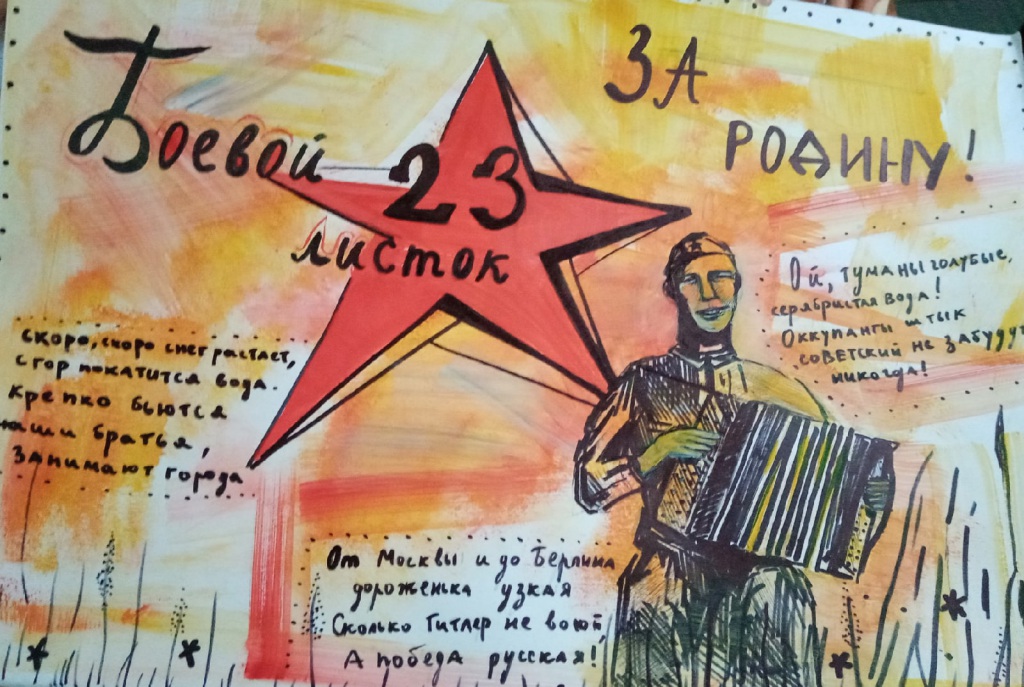 Боевой
23
листок
ЗА
РОДИНУ!
Ой, туманы голубые,
серебристая вода!
Оккупанты штык
советский не забудут
никогда!
скоро, скоро снег растает,
с гор покатится вода.
крепко бьются
наши братья,
занимают города
От Москвы и до Берлина
дороженька узкая
Сколько Гитлер не воюй,
А победа русская!